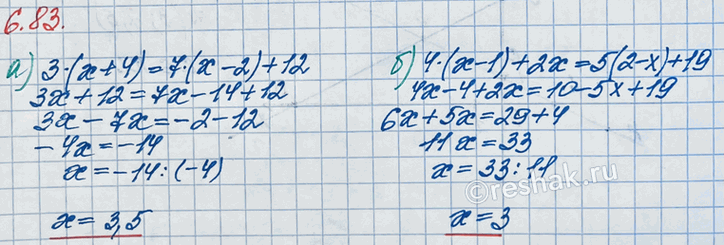 6.83.
а) 3·(x+4)=7·(x-2)+12
3x+12=7x-14+12
3x-7x=-2-12
-4x=-14
x=-14:(-4)
x=3,5
б) 4·(x-1)+2x=5(2-x)+19
4x-4+2x=10-5x+19
6x+5x=29+4
11x=33
x=33:11
x=3
©reshak.ru